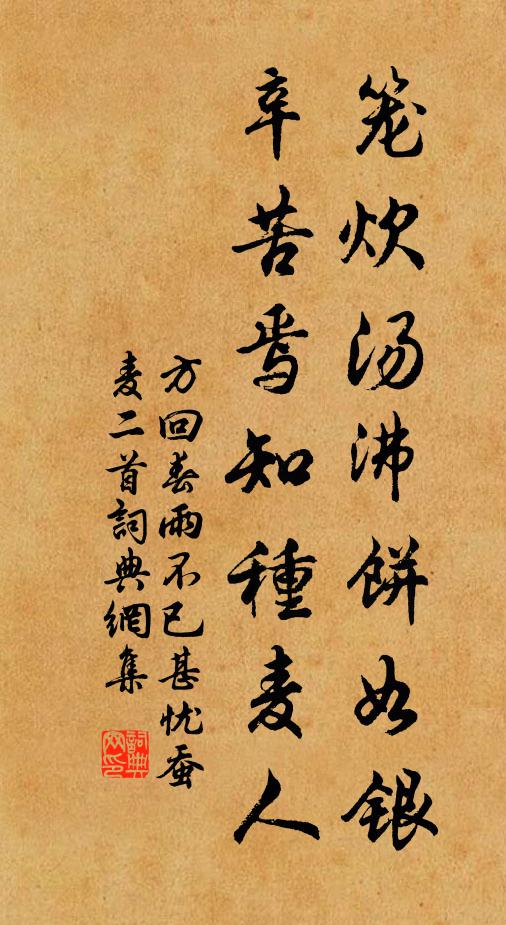 笼炊汤沸餅如銀
辛苦焉知種麦人
方回春雨不已甚忧蚕
麦二首詞典網集
詞典
网印